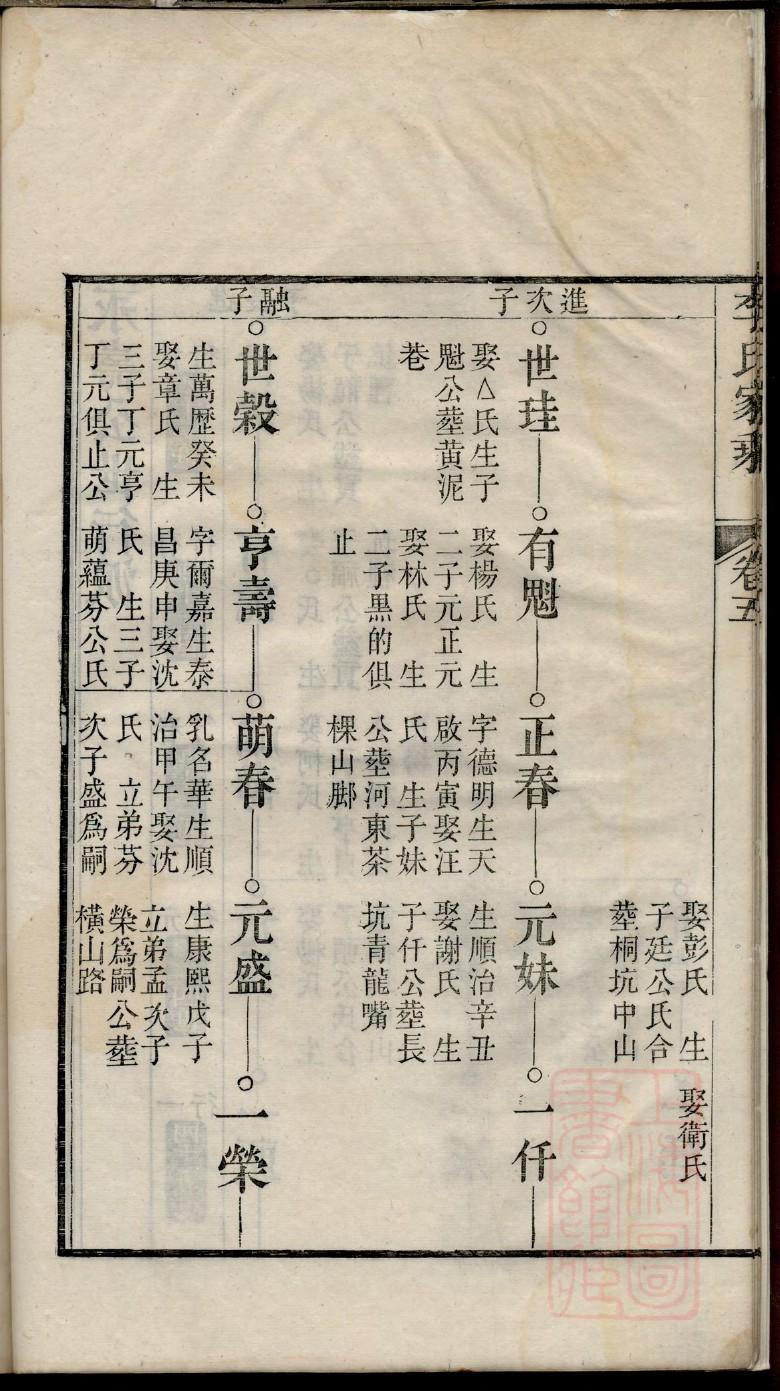 李氏家乘
卷五
娶彭氏　生
子廷公氏合
塟桐坑中山
娶衛氏
進次子
世珪
有魁
正春
元妹
一仟
娶△氏生子
魁公塟黃泥
巷
娶楊氏　生
二子元正元
娶林氏　生
二子黑的俱
止
字德明生天
啟丙寅娶汪
氏　生子妹
公塟河東茶
棵山脚
生順治辛丑
娶謝氏　生
子仟公塟長
坑青龍嘴
融子
世穀
亨壽
萌春
元盛
一榮
生萬歷癸未
娶章氏　生
三子丁元亨
丁元俱止公
字爾嘉生泰
昌庚申娶沈
氏　生三子
萌蘊芬公氏
乳名華生順
治甲午娶沈
氏　立弟芬
次子盛為嗣
生康熙戊子
立弟孟次子
榮為嗣公塟
橫山路
上海圖書館藏